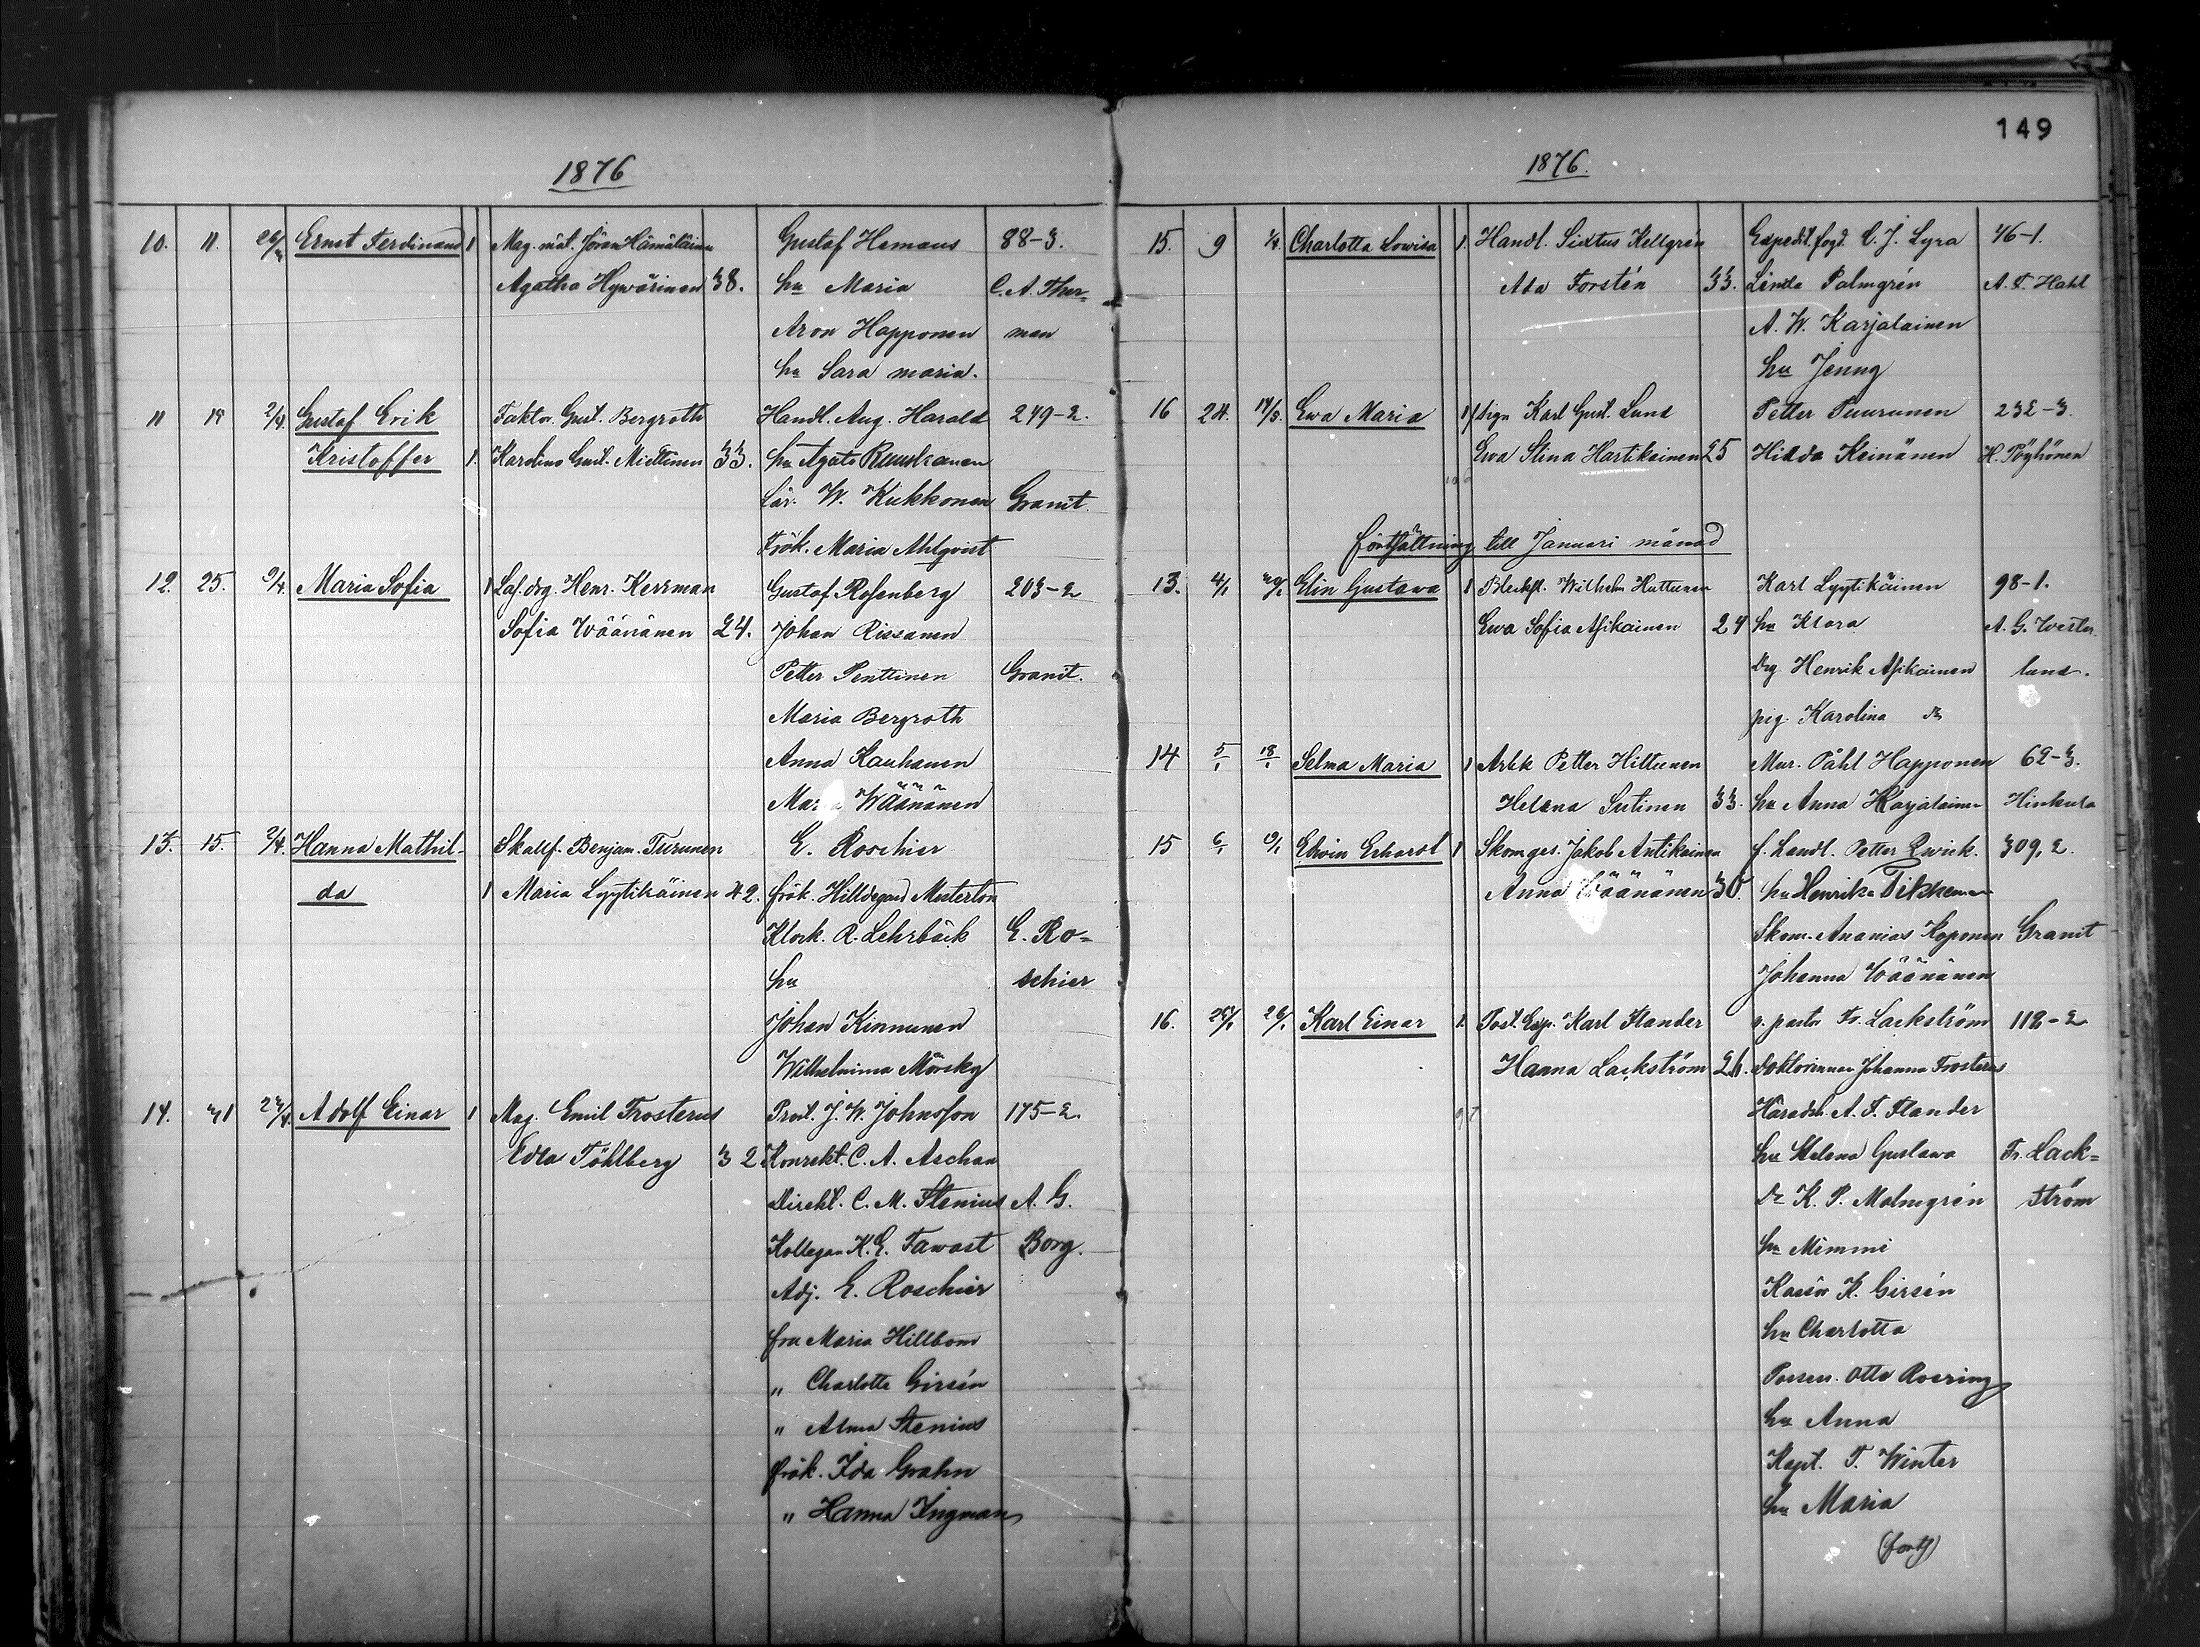 149
1876
10. 11. 26/3 Ernst Ferdinand 1 Mag. mäst. Jöran Hämäläinen Gustaf Hemans 88-3.
Agatha Hywärinen 38. hu Maria C. A. Ther-
Aron Happonen man
hu Sara Maria.
11 19 2/4. Gustaf Erik Faktor. Gust. Bergroth Handl. Aug. Harald 249-2.
Kristoffer 1. Karolina Gust. Miettinen 33. hu Agata Ruuskanen
Lär. W. Kukkonen Granit.
Frök. Maria Ahlqvist
12. 25. 9/4. Maria Sofia 1 Laf.drg. Henr. Herrman Gustaf Rosenberg 203-2
Sofia Wäänänen 24. Johan Rissanen
Petter Penttinen Granit.
Maria Bergroth
Anna Kauhanen
Maria Wäänänen
13. 15. 2/4. Hanna Mathil- Skallf. Benjam. Turunen E. Roschier
da 1 Maria Lyytikäinen 42. frök. Hilldegard Mesterton
Klock. R. Lehrbäck E. Ro-
hu schier
Johan Kinnunen
Wilhelmina Mörsky
14. 31 23/4. Adolf Einar 1 Mag. Emil Frosterus Prost. J. W. Johnsson 175-2.
Edla Föhlberg 32 Konrekt. C. A. Aschan
Direkt. C. M. Stenius A. G.
Kollegan K. E. Fawast Borg.
Adj. E. Roschier
fru Maria Hillbom
" Charlotte Girsén
" Alma Stenius
frök. Ida Grahn
" Hanna Ingman
1876.
15. 9 1/4. Charlotta Lowisa 1. Handl. Sixtus Kellgrén Expedit. fogd. C. J. Lyra 46-1.
Ada Forstén 33. Linda Palmgrén A. F. Hahl
A. W. Karjalainen
hu Jenny
16 24. 17/3. Ewa Maria 1 Karl Gust. Lund Petter Puurunen 232-3
Ewa Stina Hartikainen 25 Hilda Keinänen H. Pöyhönen
fortsättning till Januari månad
13. 4/1 Elin Gustawa 1 Blecksl. Wilhelm Huttunen Karl Lyytikäinen 98-1.
Ewa Sofia Asikainen 24 hu Klara A. G. Wester-
drg Henrik Asikainen lund.
pig. Karolina do
14 5/1 18/1 Selma Maria 1 Arbk Petter Hiltunen Mur. Påhl Happonen 62-3.
Helena Sutinen 33. hu Anna Karjalainen Hinkula
15 6/1 9/1 Edvin Erhard 1 Skom.ges. Jakob Antikainen f. Landl. Petter Qwick. 309, 2.
Anna Wäänänen 30. hu Henrika Tikkanen
Skom. Ananias Koponen Granit
Johanna Wäänänen
16. 25/1 26/1 Karl Einar 1. Post. Exp. Karl Flander v. pastor Fr. Lackström 118-2
Hanna Lackström 26. doktorinnan Johanna Frosterus
Häradsh. A. F. Flander
hu Helena Gustawa Fr. Lack-
Dr K. P. Malmgrén ström
hu Mimmi
Kassör K. Girsén
hu Charlotta
Possess. Otto Roering
hu Anna
Kapt. F. Winter
hu Maria
(forts)